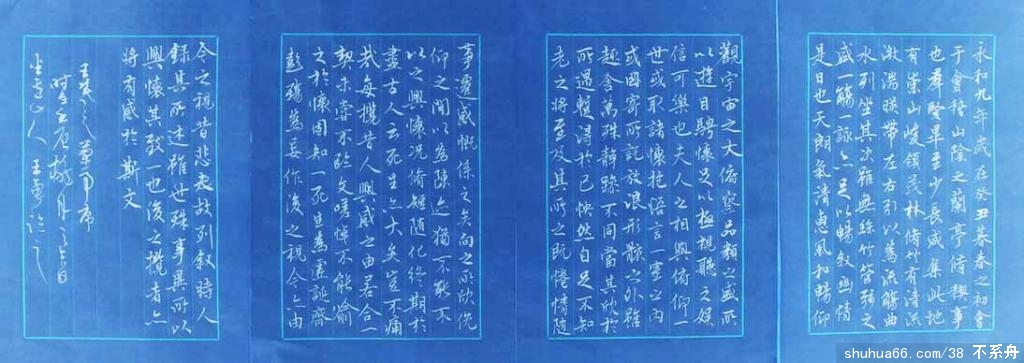 永和九年歲在癸丑暮春之初會
于會稽山陰之蘭亭脩禊事
也羣賢畢至少長咸集此地
有崇山峻領茂林脩竹有清流
激湍暎帶左右引以為流觴曲
水列坐其次雖無絲竹管弦之
盛一觴一詠亦足以暢叙幽情
是日也天朗氣清惠風和暢仰
觀宇宙之大俯察品類之盛所
以遊目騁懷足以極視聽之娛
信可樂也夫人之相與俯仰一
世或取諸懷抱悟言一室之內
或因寄所託放浪形骸之外雖
趣舍萬殊靜躁不同當其欣於
所遇蹔得於己怏然自足不知
老之將至及其所之既惓情隨
事遷感慨係之矣向之所欣俛
仰之間以為陳迹猶不能不
以之興懷況脩短隨化終期於
盡古人云死生亦大矣豈不痛
哉每攬昔人興感之由若合一
契未嘗不臨文嗟悼不能喻
之於懷固知一死生為虛誕齊
彭殤為妄作後之視今亦由
今之視昔悲夫故列叙時人
錄其所述雖世殊事異所以
興懷其致一也後之攬者亦
將有感於斯文
王羲之蘭亭序
月
山人王
shuhua66.com/38 不系舟